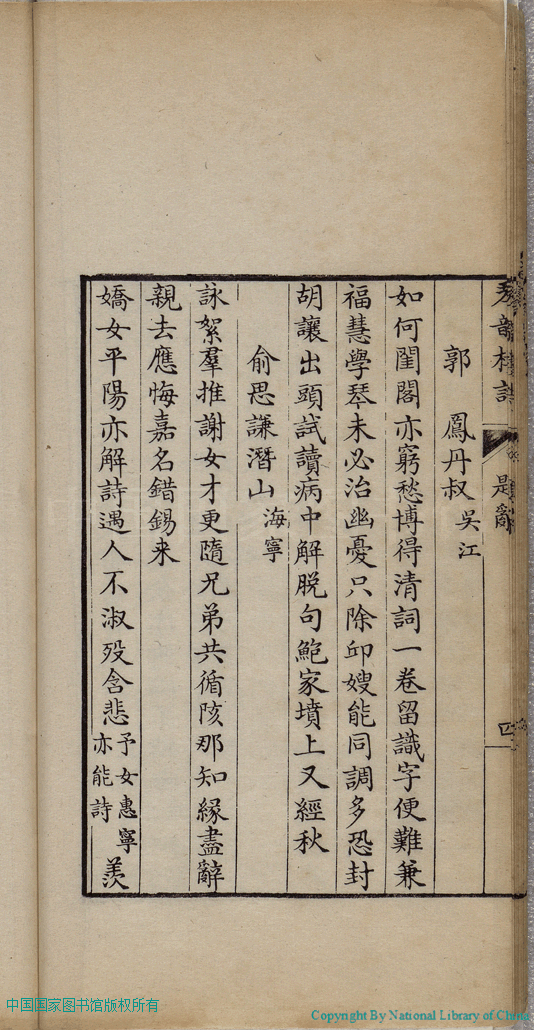 琴韻樓詩 是辭 四
郭 鳳丹叔 吳江
如何閨閣亦窮愁博得清詞一卷留識字便難兼
福慧學琴未必治幽憂只除邱嫂能同調多恐封
胡讓出頭試讀病中解脫句鮑家墳上又經秋
俞思謙潛山 海寧
詠絮羣推謝女才更隨兄弟共循陔那知緣盡辭
親去應悔嘉名錯錫来
嬌女平陽亦解詩遇人不淑歿含悲予女惠寧亦能詩羨
中国国家图书馆版权所有
Copyright By National Library of China